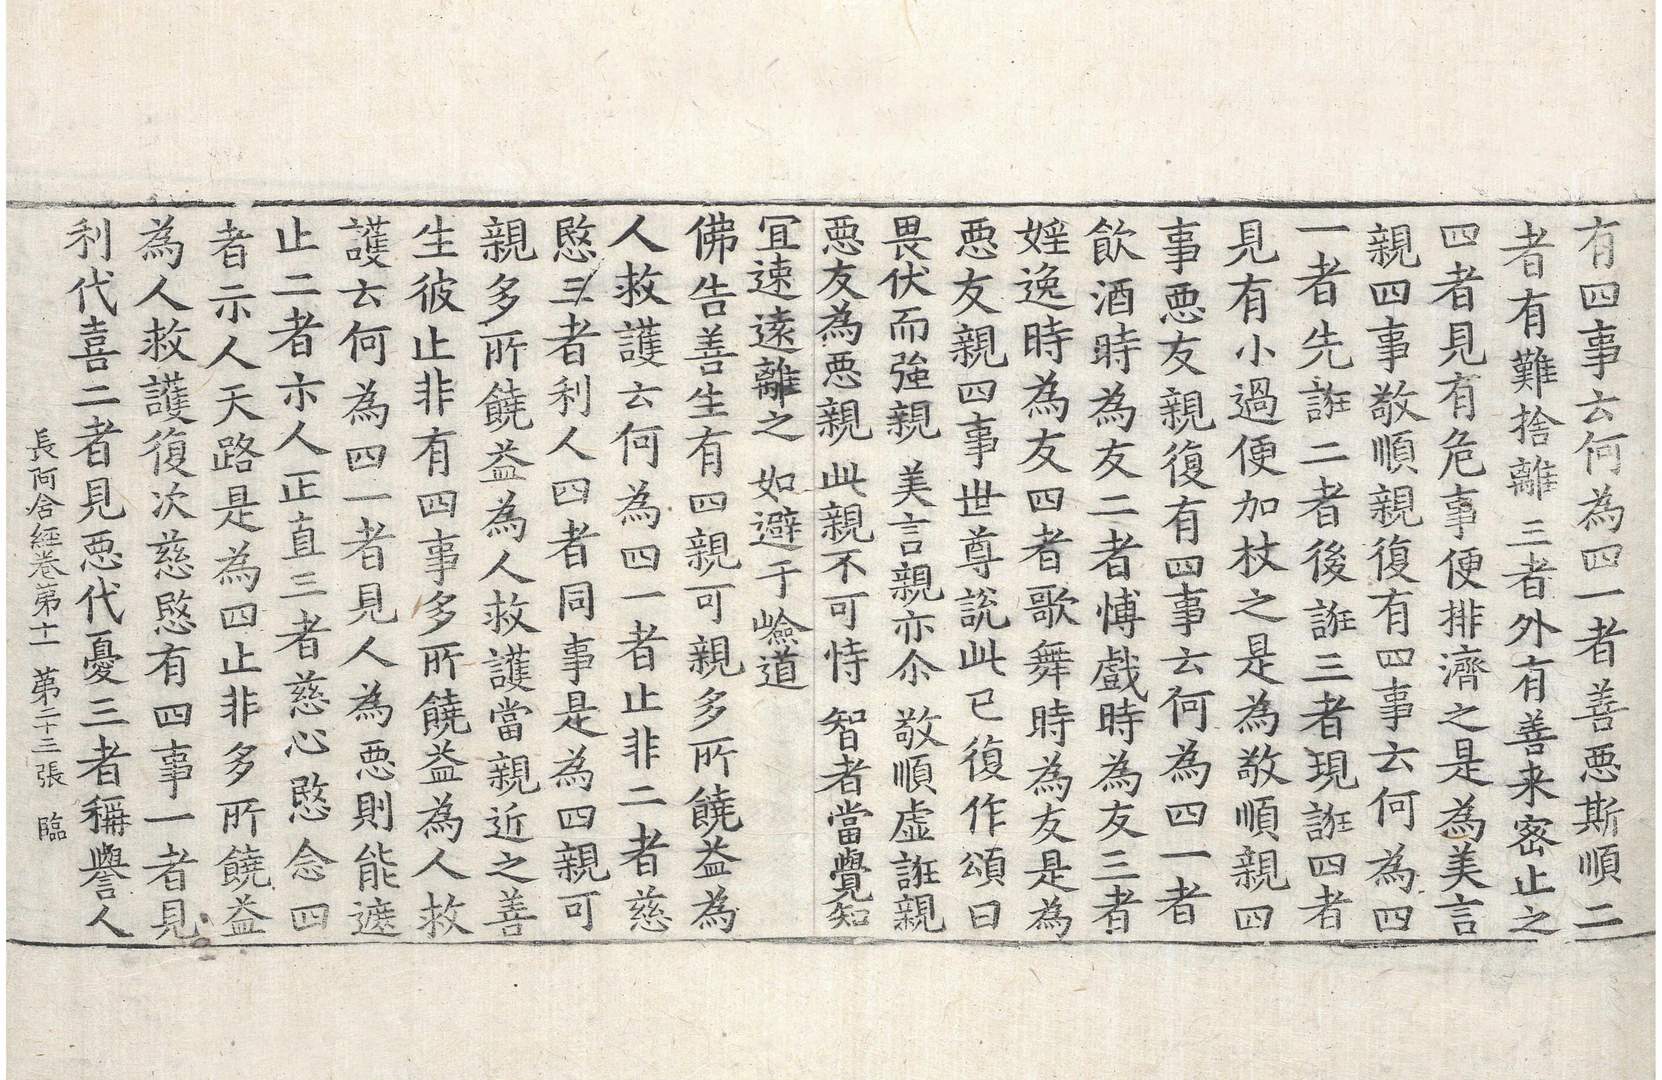 有四事云何為四一者善惡斯順二
者有難捨離三者外有善来密止之
四者見有危事便排濟之是為美言
親四事敬順親復有四事云何為四
一者先誑二者後誑三者現誑四者
見有小過便加杖之是為敬順親四
事惡友親復有四事云何為四一者
飲酒時為友二者博戲時為友三者
婬逸時為友四者歌舞時為友是為
惡友親四事世尊說此已復作頌曰
畏伏而強親 美言親亦尒 敬順虛誑親
惡友為惡親 此親不可恃 智者當覺知
冝速遠離之 如避于嶮道
佛告善生有四親可親多所饒益為
人救護云何為四一者止非二者慈
愍三者利人四者同事是為四親可
親多所饒益為人救護當親近之善
生彼止非有四事多所饒益為人救
護云何為四一者見人為惡則能遮
止二者示人正直三者慈心愍念四
者示人天路是為四止非多所饒益
為人救護復次慈愍有四事一者見
利代喜二者見惡代憂三者稱譽人
長阿含經卷第十一 第二十三張 臨